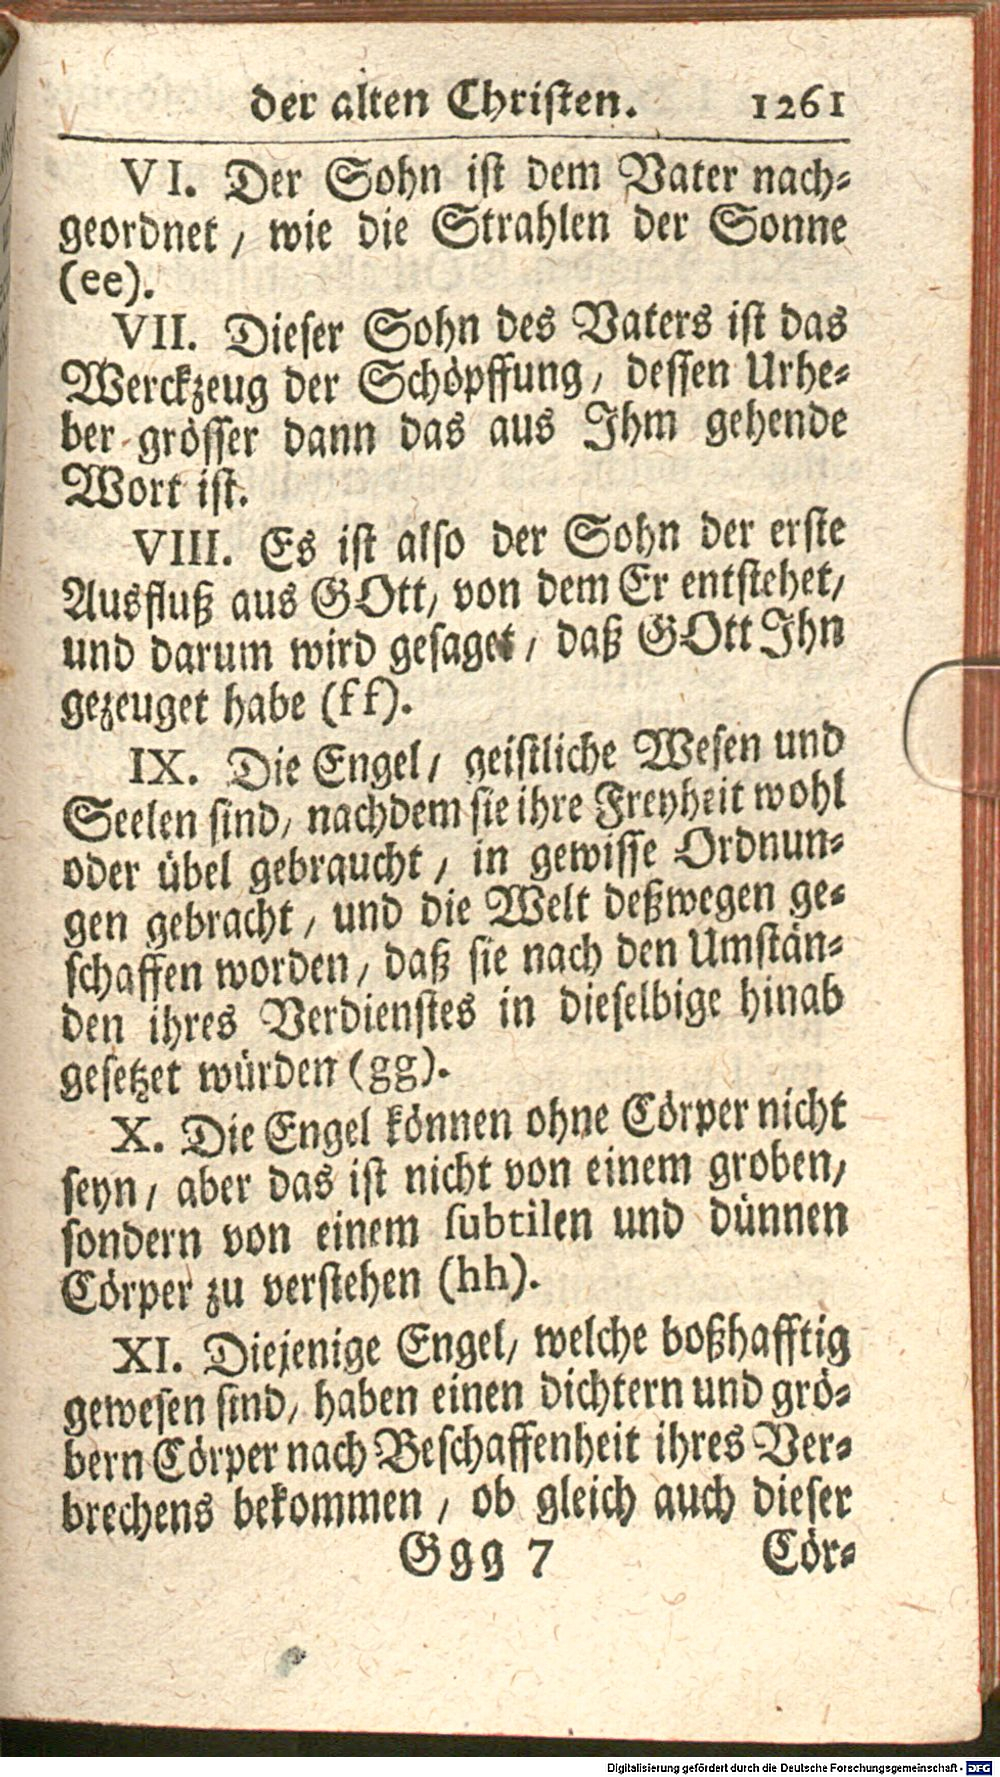 der alten Christen. 1261
VI. Der Sohn ist dem Vater nach-
geordnet, wie die Strahlen der Sonne
(ee).
VII. Dieser Sohn des Vaters ist das
Werckzeug der Schöpffung, dessen Urhe-
ber grösser dann das aus Ihm gehende
Wort ist.
VIII. Es ist also der Sohn der erste
Ausfluß aus GOtt, von dem Er entstehet,
und darum wird gesaget, daß GOtt Ihn
gezeuget habe (ff).
IX. Die Engel, geistliche Wesen und
Seelen sind, nachdem sie ihre Freyheit wohl
oder übel gebraucht, in gewisse Ordnun-
gen gebracht, und die Welt deßwegen ge-
schaffen worden, daß sie nach den Umstän-
den ihres Verdienstes in dieselbige hinab
gesetzet würden (gg).
X. Die Engel können ohne Cörper nicht
seyn, aber das ist nicht von einem groben,
sondern von einem subtilen und dünnen
Cörper zu verstehen (hh).
XI. Diejenige Engel, welche boßhafftig
gewesen sind, haben einen dichtern und grö-
bern Cörper nach Beschaffenheit ihres Ver-
brechens bekommen, ob gleich auch dieser
Ggg 7 Cör-
Digitalisierung gefördert durch die Deutsche Forschungsgemeinschaft - DFG